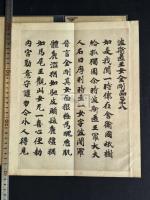 波斯匿王女金剛品第八
如是我聞一時佛在舍衛國祇樹
給孤獨園尒時波斯匿王最大夫
人名曰摩利時生一女字波闍羅
晉言金剛其女面貌極為醜惡肌
體麁澀猶如駝皮頭髮麁強猶
如馬尾王觀此女無一喜心便勑
內宮勤意守護勿令外人得見